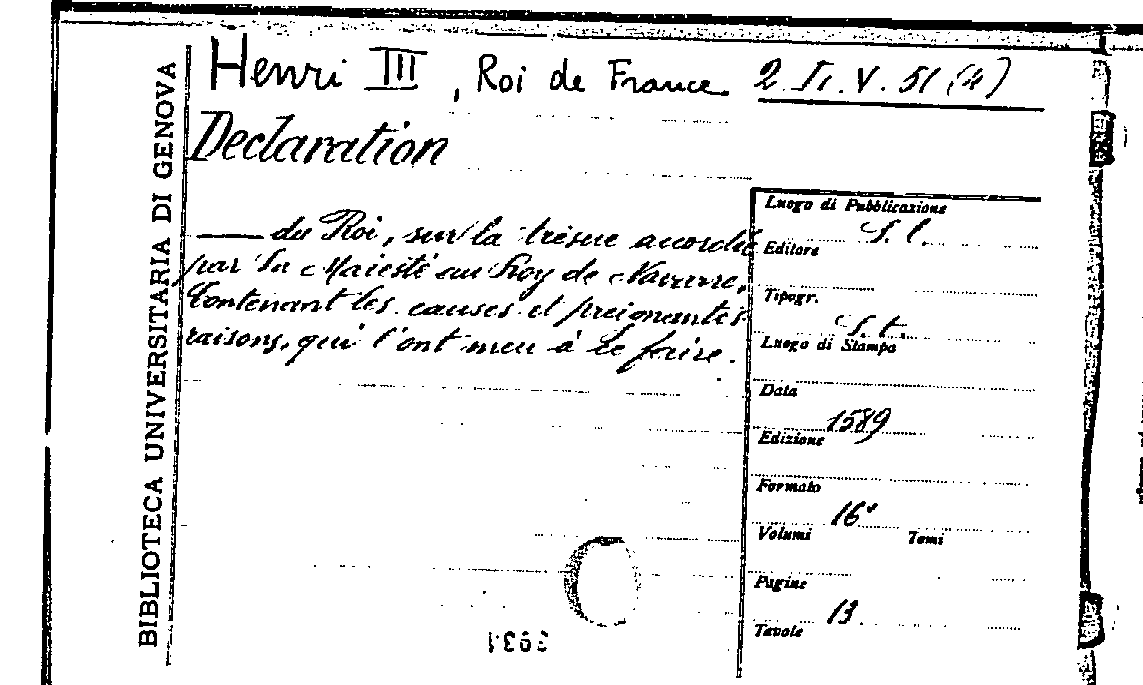 BIBLIOTECA UNIVERSITARIA DI GENOVA
Henri III, Roi de France 2. V. 51 (4)
Declaration
— du Roi, sur la tresue accordée
par Sa Maiesté au Roy de Navarre,
Contenant les causes et preignantes
raisons, qui l'ont meu à le faire.
Luogo di Pubblicazione
S. l.
Editore
Tipogr.
S. t.
Luogo di Stampa
Data
1589
Edizione
Formato
16°
Volumi Tomi
Pagine
13
Tavole